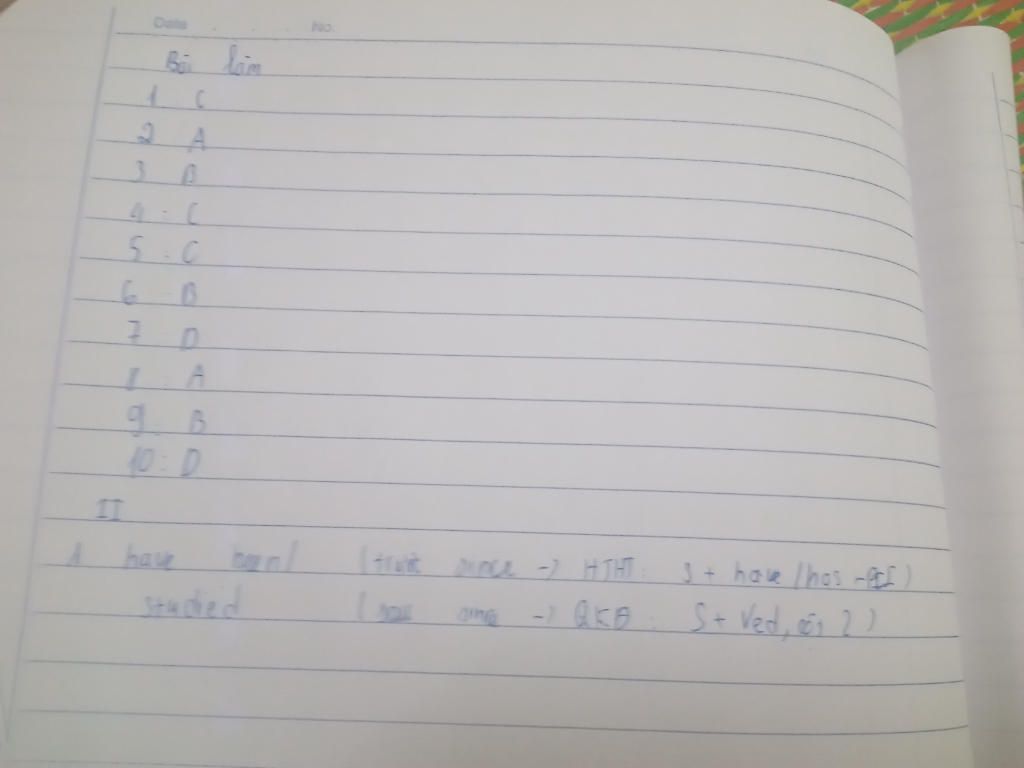 Date . . . . No.
Bài làm
1 C
2 A
3 B
4 : C
5 : C
6 B
7 D
8 A
9 B
10 : D
II
1 have been / (trước since -> HTHT: S + have / has -PII)
studied (sau since -> QKĐ : S + Ved, cột 2)